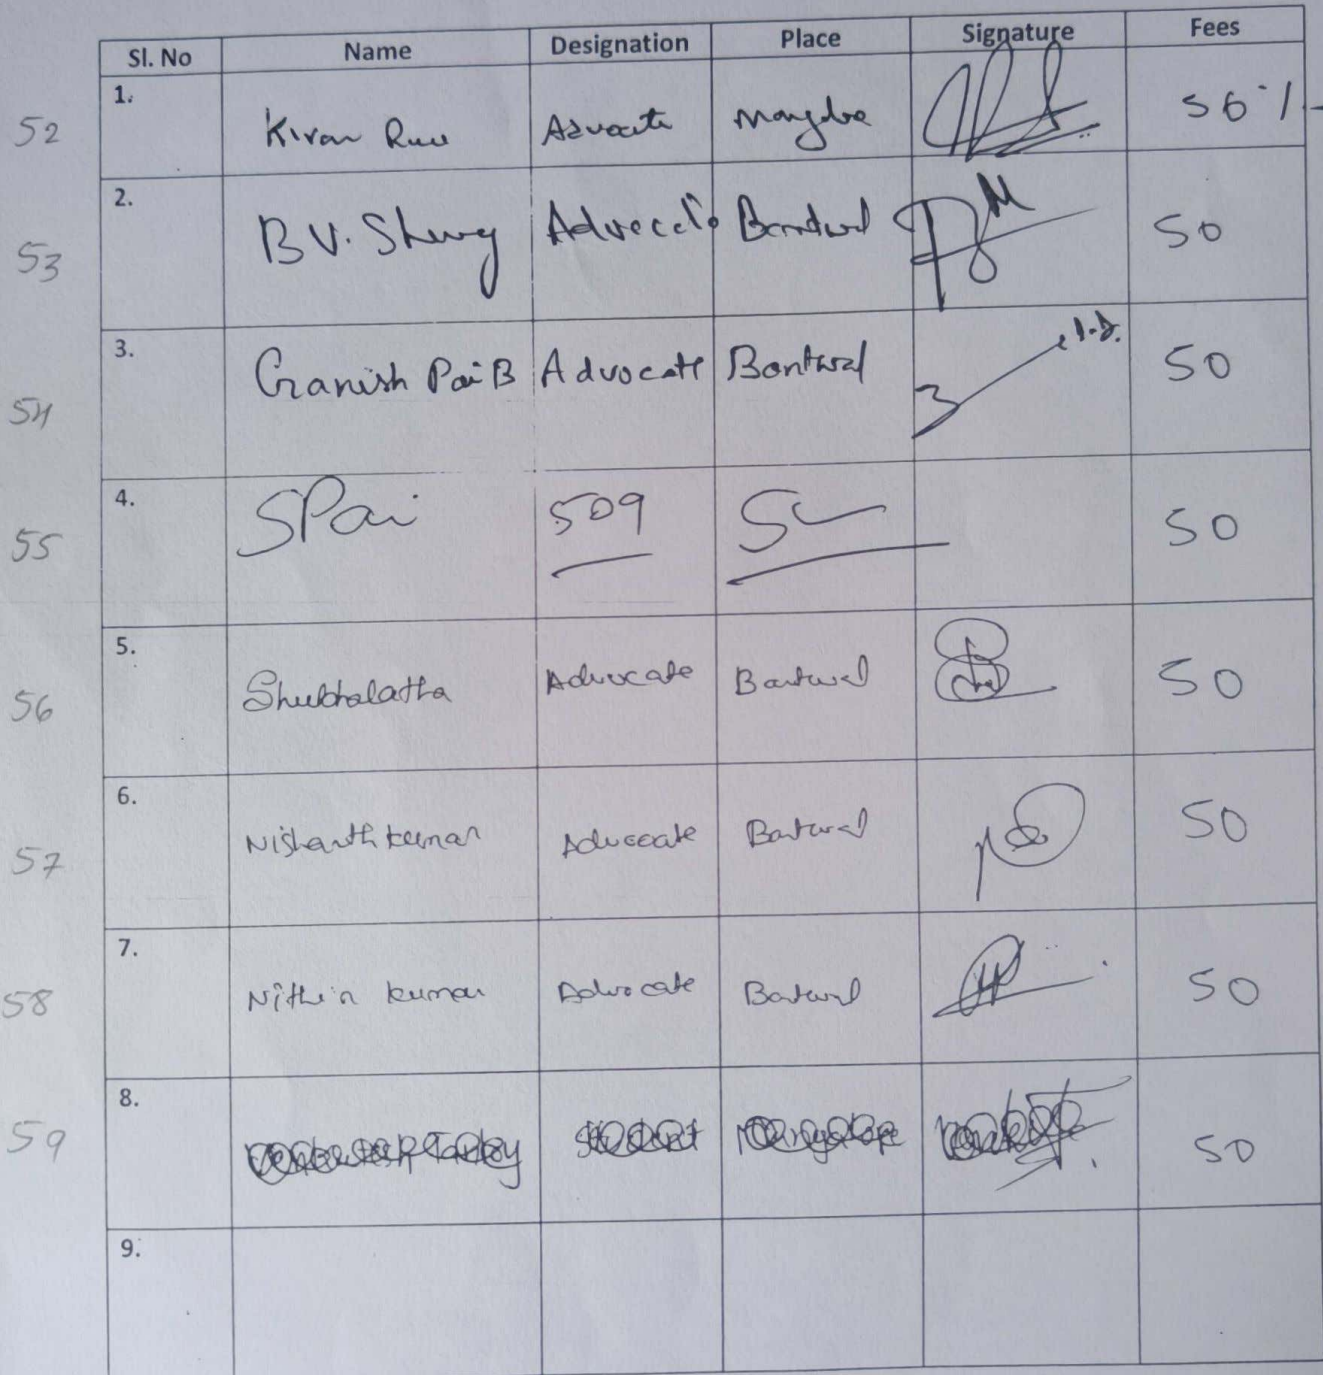 Sl. No Name Designation Place Signature Fees
52 1. Kiran Rao Advocate 50/-
53 2. B V. Shenoy Advocate Bantwal 50
54 3. Ganish Pai B Advocate Bantwal 50
55 4. S Pai 509 50
56 5. Shubhalatha Advocate Bantwal 50
57 6. Nishanth kumar Advocate Bantwal 50
58 7. Nithin kumar Advocate Bantwal 50
59 8. 50
9.